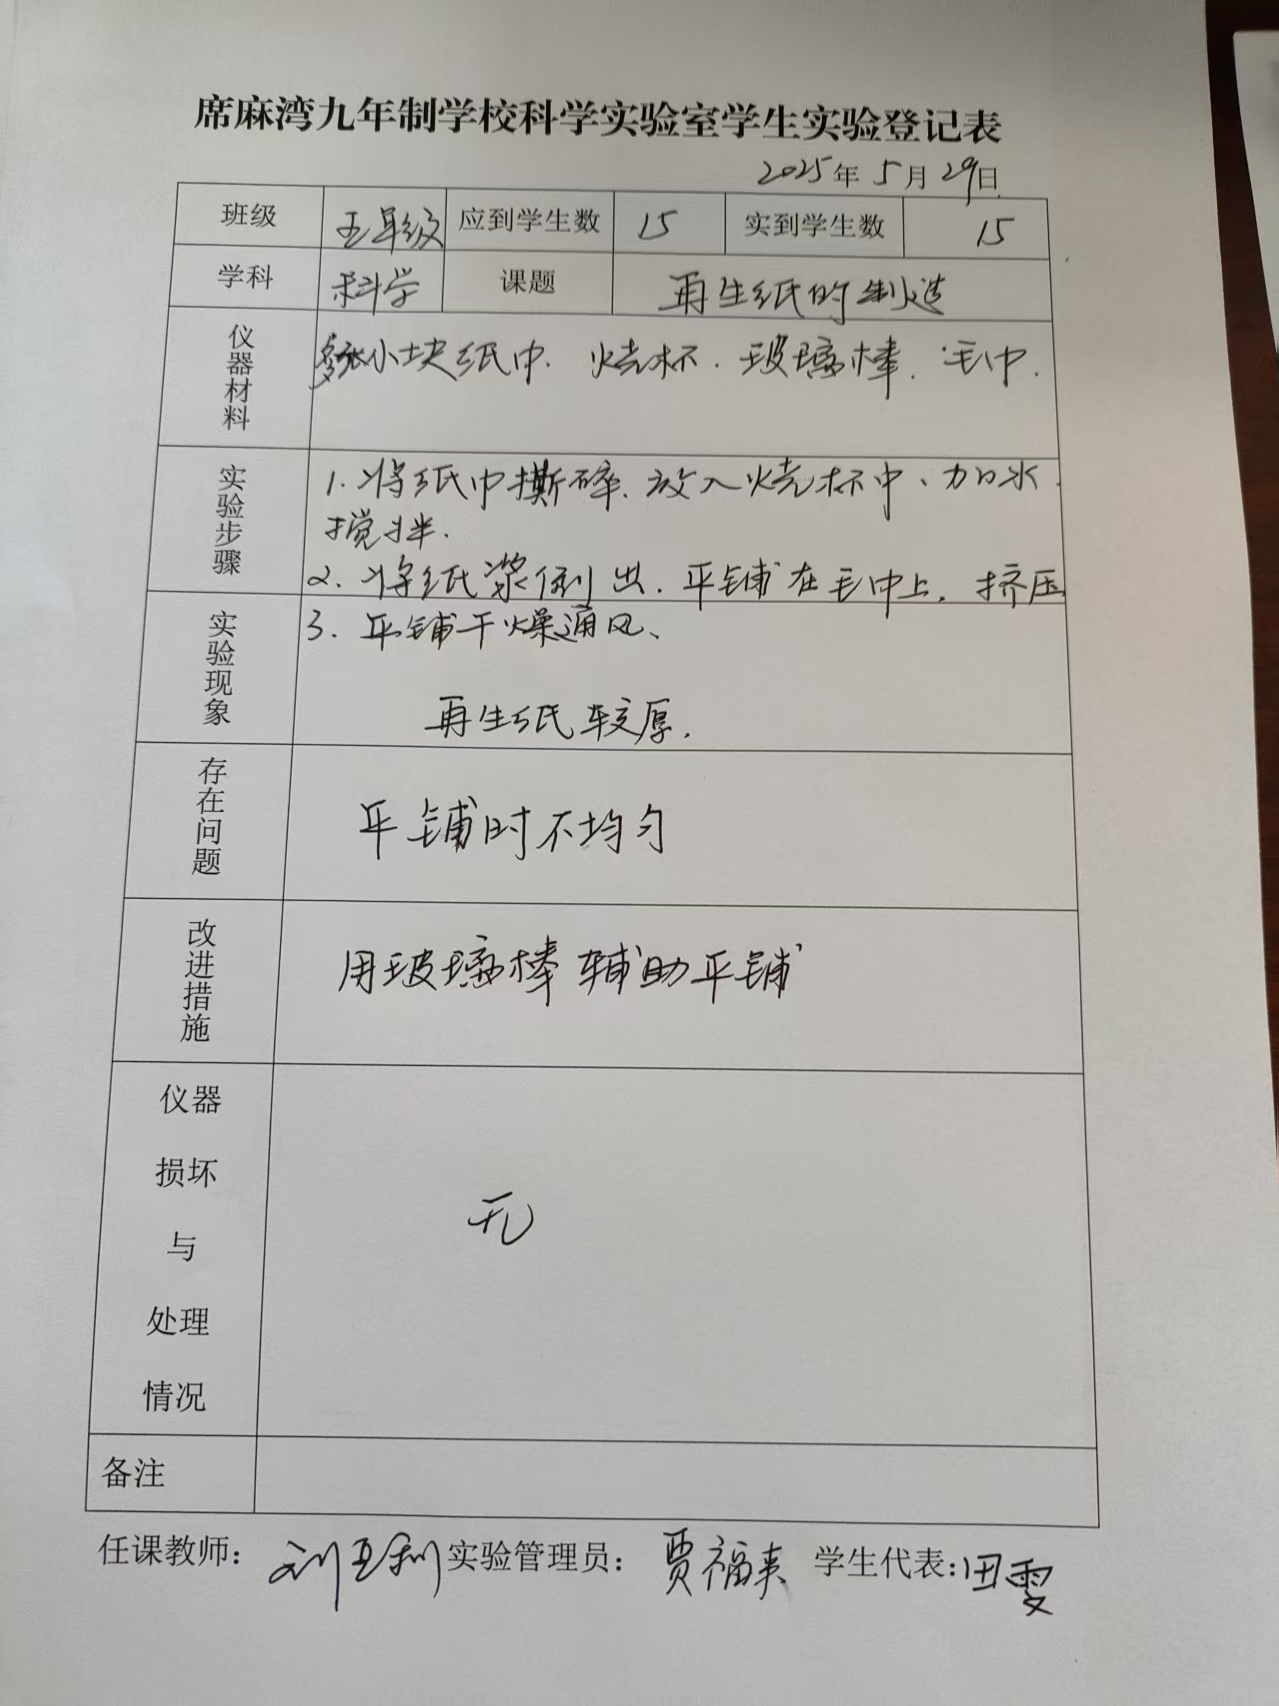 席麻湾九年制学校科学实验室学生实验登记表
2025年 5月 29日
班级 五年级 应到学生数 15 实到学生数 15
学科 科学 课题 再生纸的制造
仪器材料
小块纸巾. 烧杯. 玻璃棒. 毛巾.
实验步骤
1. 将纸巾撕碎、放入烧杯中、加水.
搅拌.
2. 将纸浆倒出. 平铺在毛巾上, 挤压
实验现象
3. 平铺干燥通风、
再生纸较厚.
存在问题
平铺时不均匀
改进措施
用玻璃棒辅助平铺
仪器
损坏
与
处理
情况
无
备注
任课教师: 刘 实验管理员: 贾福 学生代表: 田雯